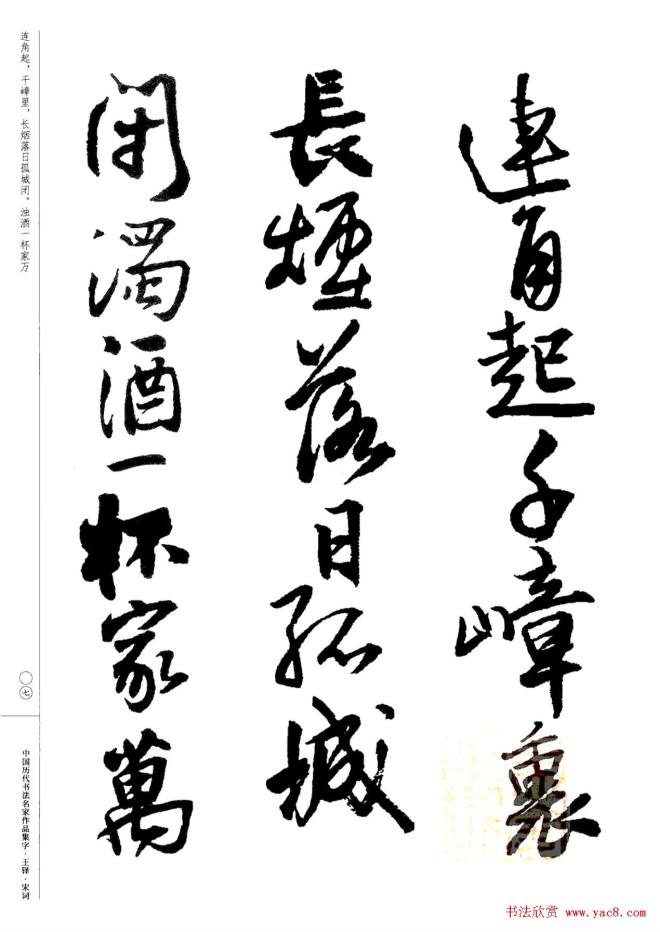 連角起千嶂裏
長煙落日孤城
閉濁酒一杯家萬
连角起，千嶂里，长烟落日孤城闭。浊酒一杯家万
〇七
中国历代书法名家作品集字·王铎·宋词
书法欣赏 www.yac8.com